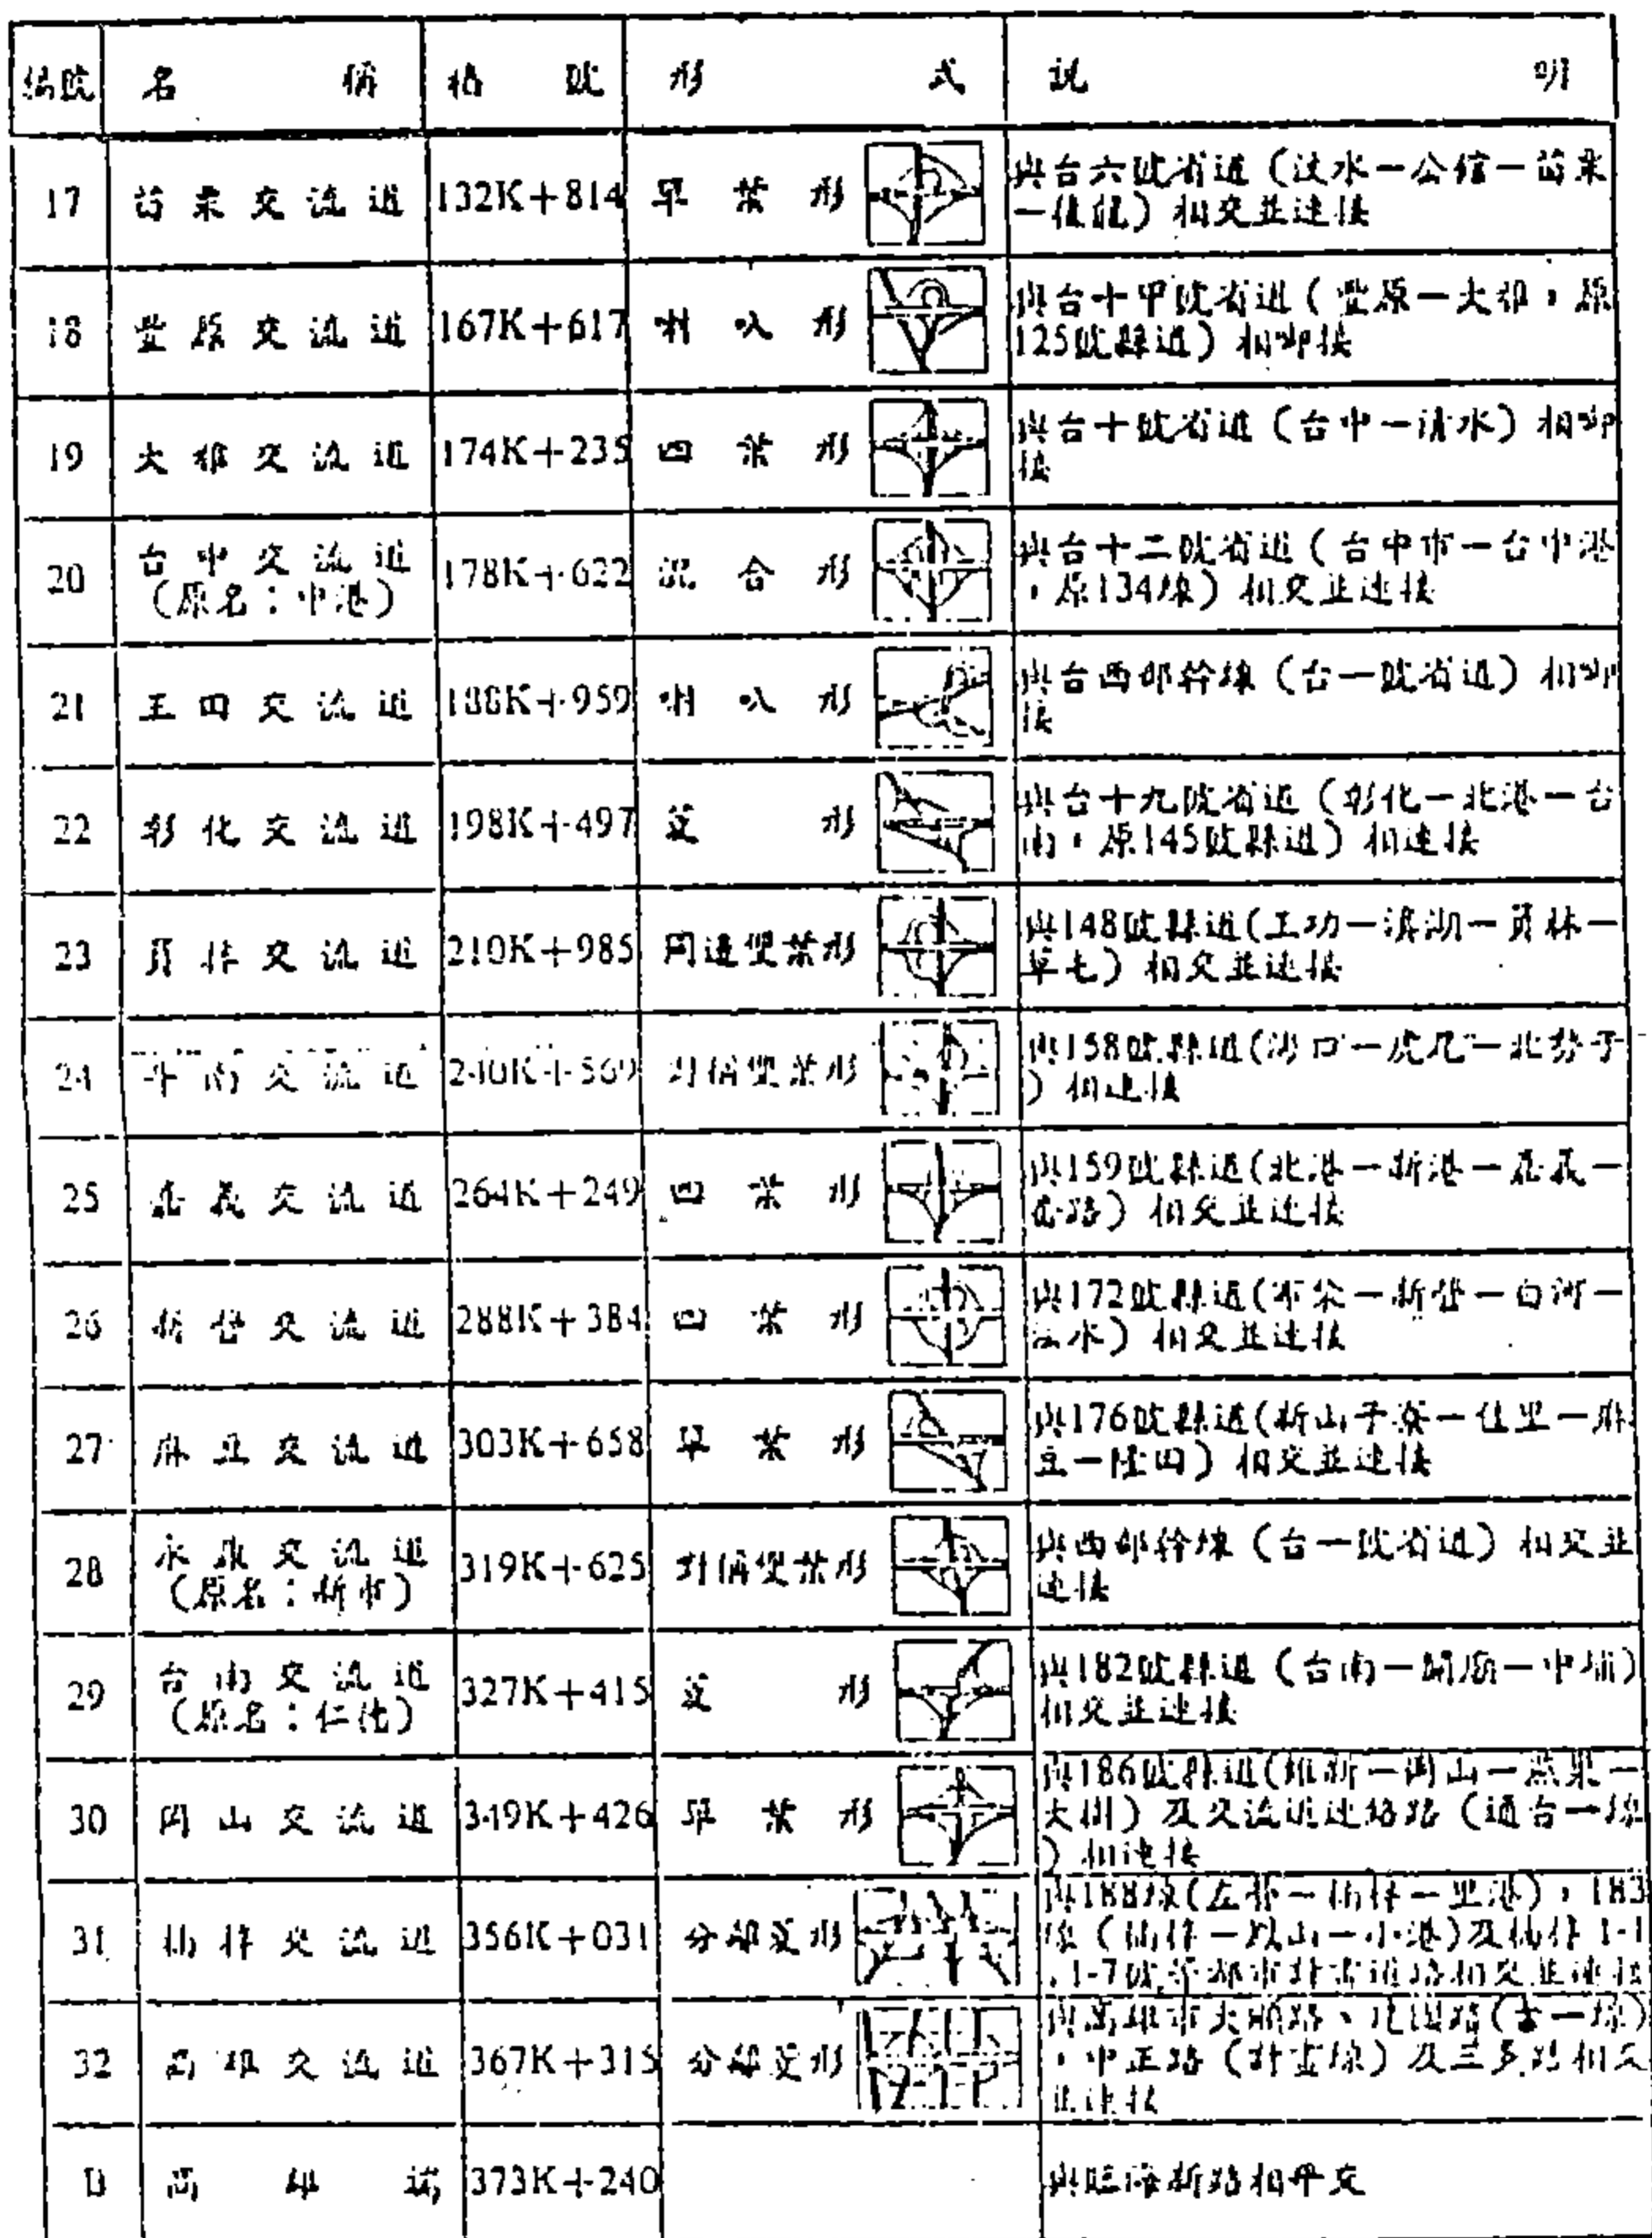 編號 名稱 樁號 形式 說明
17 苗栗交流道 132K+814 單葉形 與台六號省道（汶水－公館－苗栗
－後龍）相交並連接
18 豐原交流道 167K+617 喇叭形 與台十甲號省道（豐原－大雅，原
125號縣道）相啣接
19 大雅交流道 174K+235 四葉形 與台十號省道（台中－清水）相啣
接
20 台中交流道 178K+622 混合形 與台十二號省道（台中市－台中港
（原名：中港） ，原134線）相交並連接
21 王田交流道 188K+959 喇叭形 與台西部幹線（台一號省道）相啣
接
22 彰化交流道 198K+497 菱形 與台十九號省道（彰化－北港－台
南，原145號縣道）相連接
23 員林交流道 210K+985 同邊雙葉形 與148號縣道(王功－溪湖－員林－
草屯）相交並連接
24 斗南交流道 240K+569 對稱雙葉形 與158號縣道(湖口－虎尾－北勢子
）相連接
25 嘉義交流道 264K+249 四葉形 與159號縣道(北港－新港－嘉義－
番路）相交並連接
26 新營交流道 288K+384 四葉形 與172號縣道(布袋－新營－白河－
水）相交並連接
27 麻豆交流道 303K+658 單葉形 與176號縣道(新山子寮－佳里－麻
豆－隆田）相交並連接
28 永康交流道 319K+625 對稱雙葉形 與西部幹線（台一號省道）相交並
（原名：新市） 連接
29 台南交流道 327K+415 菱形 與182號縣道（台南－關廟－中埔）
（原名：仁德） 相交並連接
30 岡山交流道 349K+426 單葉形 與186號縣道(維新－岡山－燕巢－
大樹）及交流道連絡路（通台一線
）相連接
31 楠梓交流道 356K+031 分離菱形 與188線(左營－楠梓－里港)，183
線（楠梓－鳳山－小港)及楠梓1-1
、1-7號等都市計畫道路相交並連接
32 高雄交流道 367K+315 分離菱形 與高雄市大順路、建國路(台一線)
，中正路（計畫線）及三多路相交
並連接
B 高雄端 373K+240 與臨海新路相平交